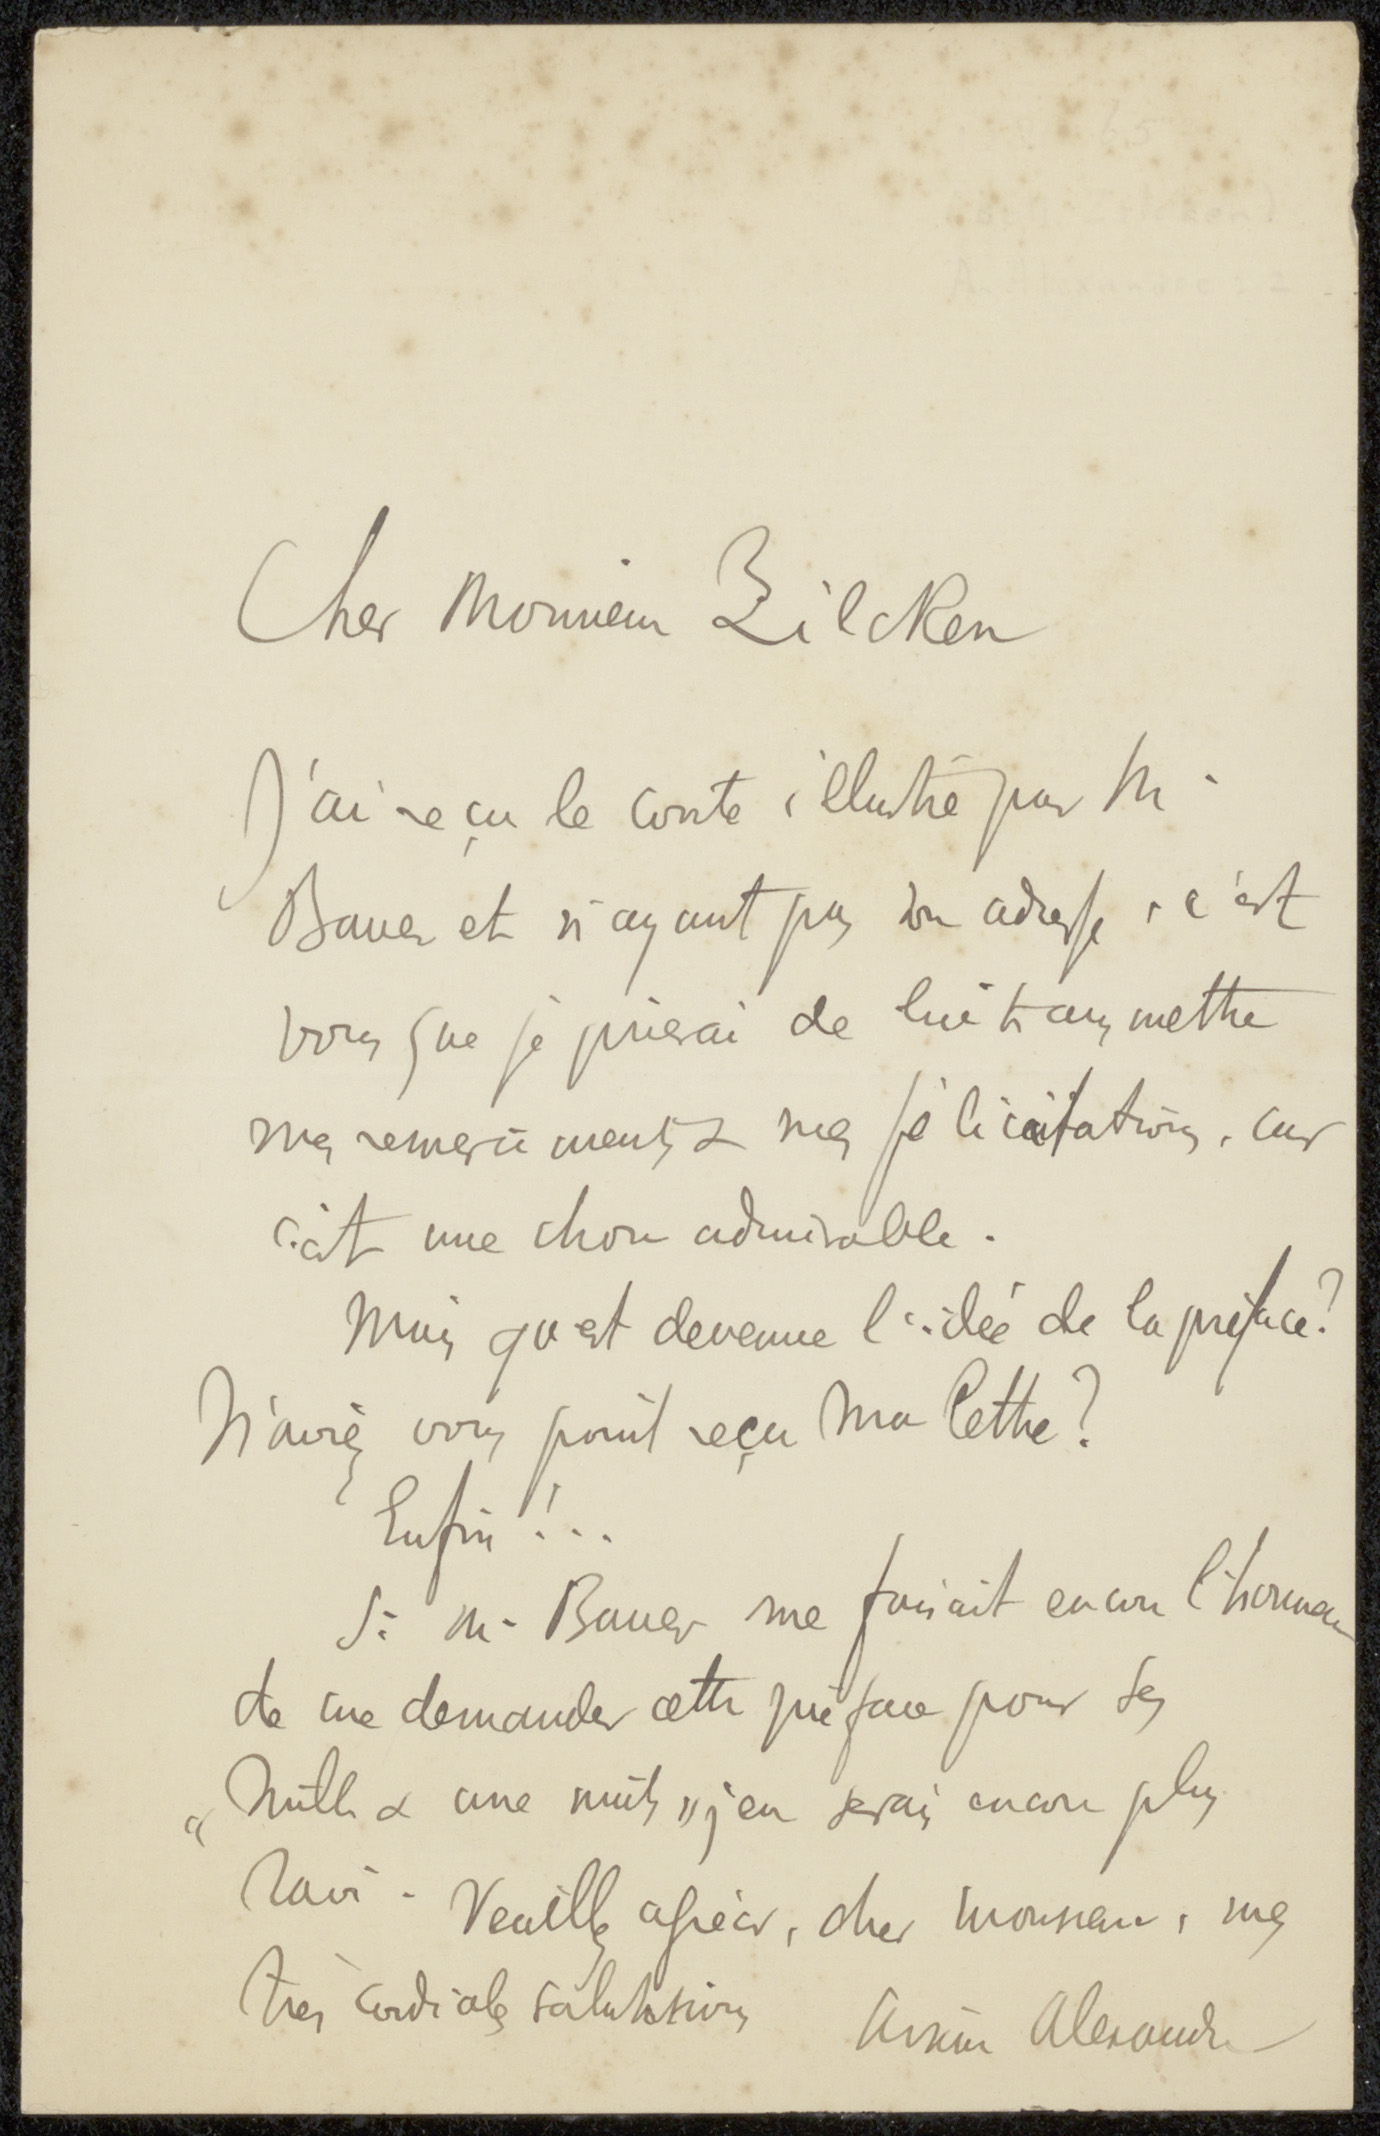 Cher Monsieur Zilcken
J'ai reçu le conte illustré par M.
Bauer et n'ayant pas son adresse, c'est
vous que je prierai de lui transmettre
mes remerciements & mes félicitations, car
c'est une chose admirable.
Mais qu'est devenue l'idée de la préface?
N'aviez vous point reçu ma lettre?
Enfin!..
Si M. Bauer me faisait encore l'honneur
de me demander cette préface pour ses
"Mille & une nuits" j'en serais encore plus
ravi. Veuillez agréer, cher monsieur, mes
très cordiales salutations
Arsène Alexandre